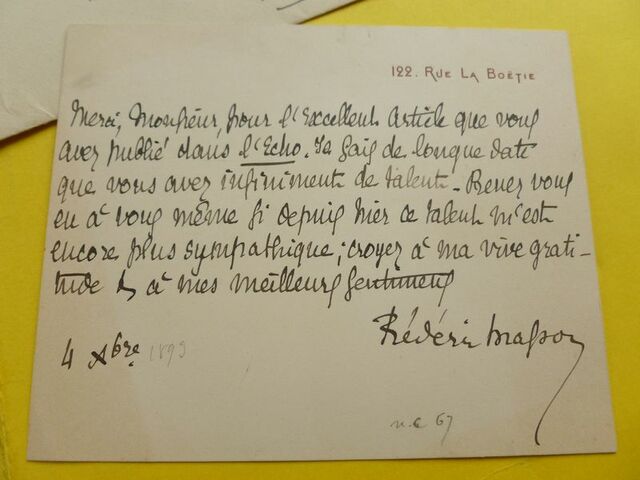 122. RUE LA BOËTIE
Merci, Monsieur, pour l'Excellent Article que vous
avez publié dans l'Echo. Je sais de longue date
que vous avez infiniment de talent. Prenez vous
en à vous même si depuis hier ce talent m'est
encore plus sympathique ; croyez à ma vive grati-
tude & à mes meilleurs sentiments
Frédéric Masson
4 Xbre 1893
n.c 67